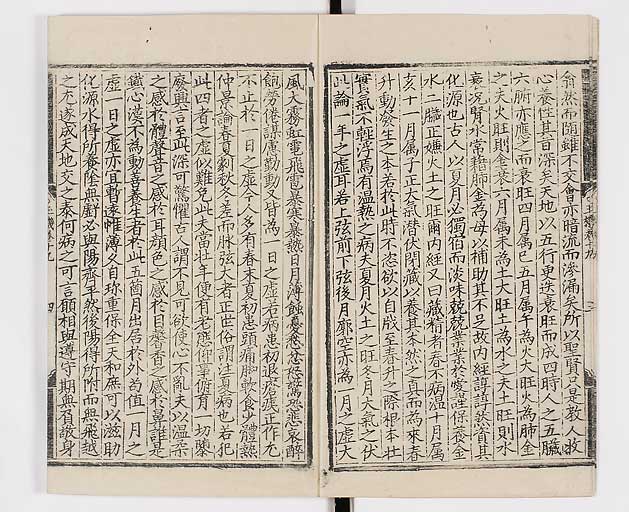 翕然而隨雖不交會亦暗流而滲漏矣所以聖賢只是教人收
心養性其旨深矣天地以五行更迭衰旺而成四時人之五臟
六腑亦應之而衰旺四月屬巳五月屬午為火大旺火為肺金
之夫火旺則金衰六月屬未為土大旺土為水之夫土旺則水
衰況腎水常藉肺金為母以補助其不足故內經諄諄然資其
化源也古人以夏月必獨宿而淡味兢兢業業於愛護保養金
水二臟正嫌火土之旺爾內經又曰藏精者春不病溫十月屬
亥十一月屬子正大氣潜伏閉藏以養其本然之真而為來春
升動發生之本若於此時不恣欲以自戕至春升之際根本壯
實氣不輕浮焉有溫熱之病夫夏月火土之旺冬月大氣之伏
此論一年之虛耳若上弦前下弦後月廓空亦為一月之虛大
風大霧虹電飛雹暴寒暴熱日月薄蝕憂愁忿怒驚恐悲哀醉
飽勞倦謀慮勤動又皆為一日之虛若病患初退瘡痍正作尤
不止於一日之虛今人多有春末夏初患頭痛脚軟食少體熱
仲景論春夏劇秋冬差而脉弦大者正世俗謂注夏病也若犯
此四者之虛似難免此夫當壯年便有老態仰事俯育一切隳
廢興言至此深可驚懼古人謂不見可欲使心不亂夫以溫柔
之感於體聲音之感於耳顏色之感於目馨香之感於鼻誰是
鐵心漢不為動善養生者於此五箇月出居於外苟值一月之
虛一日之虛亦宜暫遠帷薄各自珍重保全天和庶可以滋助
化源水得所養陰無虧必與陽齊平然後陽得所附而無飛越
之尤遂成天地交之泰何病之可言願相與遵守期無負敬身
四